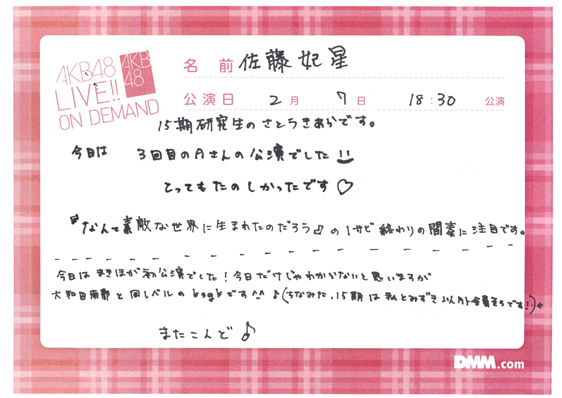 AKB48
LIVE!!
ON DEMAND
AKB
48
名 前 佐藤妃星
公演日 2月 7日 18:30 公演
15期研究生のさとうきあらです。
今日は 3回目のAさんの公演でした
とってもたのしかったです♡
『なんて素敵な世界に生まれたのだろう』の1サビ終わりの間奏に注目です。
今日はまきほが初公演でした!今日だけじゃわからないと思いますが
大和田南那と同レベルのksgkです^^♪(ちなみに、15期は私とみずき以外全員そうです!)←
またこんど♪
DMM.com